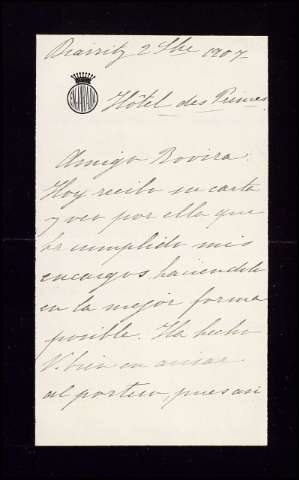 Biarritz 2 Sbre 1907
Hôtel des Princes
Amigo Rovira:
Hoy recibo su carta
y veo por ella que
ha cumplido mis
encargos, haciendolo
en la mejor forma
posible. Ha hecho
V. bien en avisar
al portero, pues asi